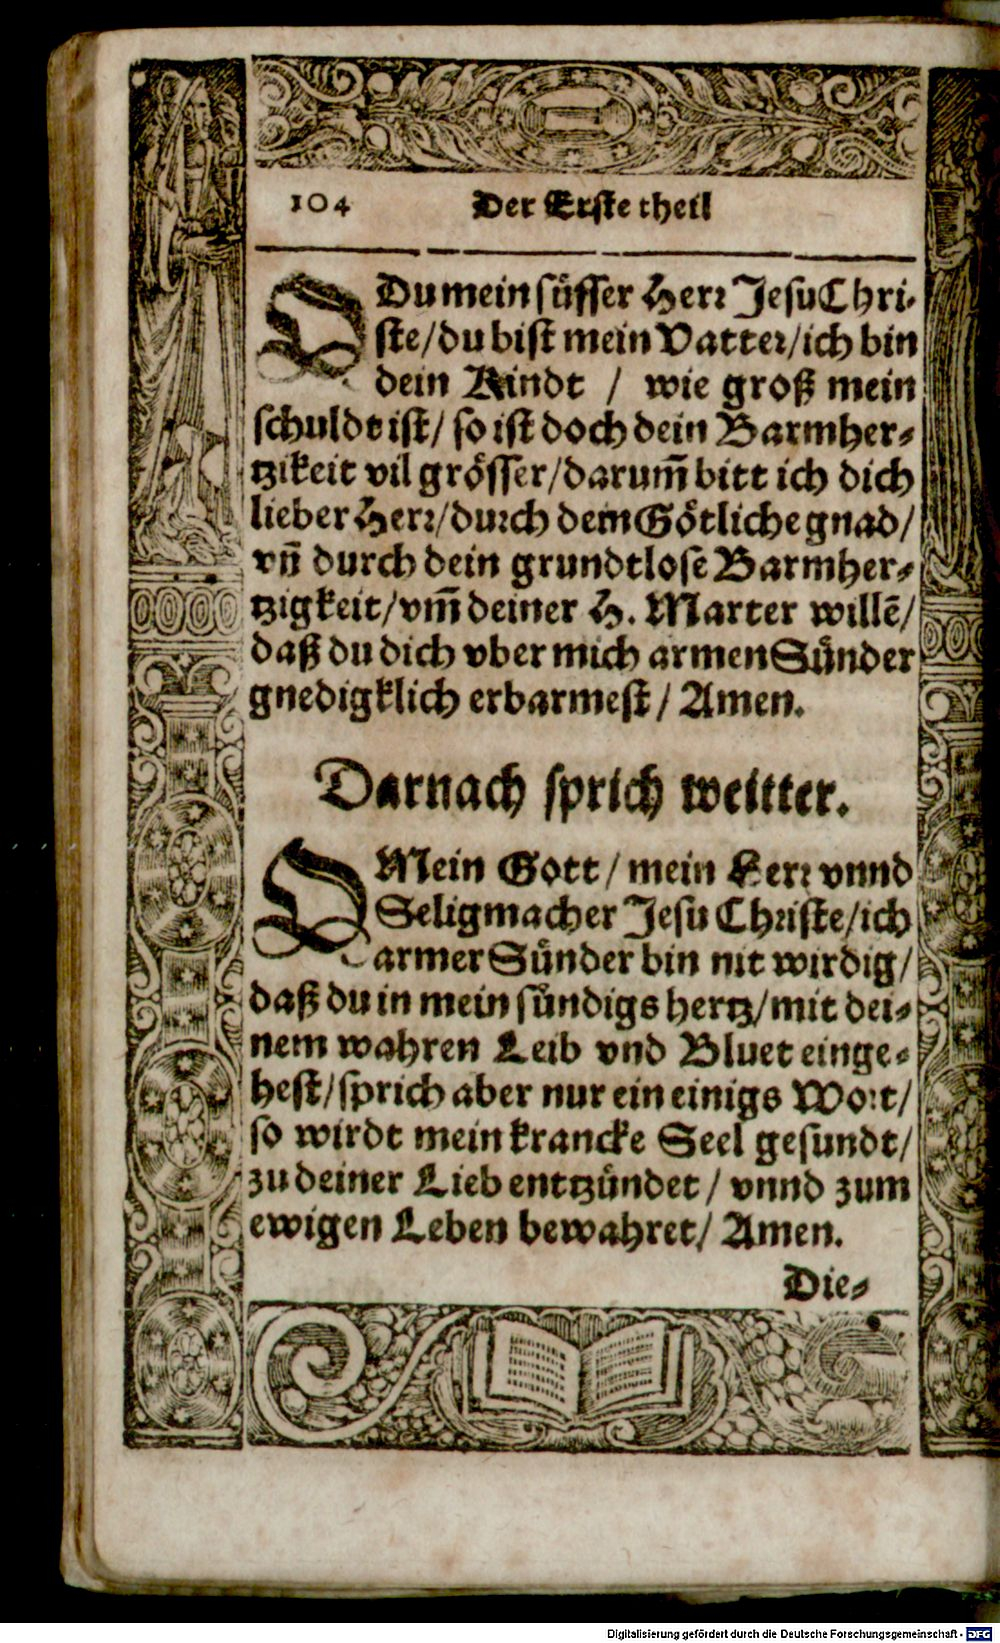 104 Der Erste theil
O Du mein süsser Herr Jesu Chri-
ste/ du bist mein Vatter/ ich bin
dein Kindt / wie groß mein
schuldt ist/ so ist doch dein Barmher-
tzikeit vil grösser/ darum̃ bitt ich dich
lieber Herr/ durch dein Götliche gnad/
vñ durch dein grundtlose Barmher-
tzigkeit/ vm̃ deiner H. Marter willẽ/
daß du dich vber mich armen Sünder
gnedigklich erbarmest/ Amen.
Darnach sprich weitter.
O Mein Gott/ mein Herr vnnd
Seligmacher Jesu Christe/ ich
armer Sünder bin nit wirdig/
daß du in mein sündigs hertz/ mit dei-
nem wahren Leib vnd Bluet einge-
hest/ sprich aber nur ein einigs Wort/
so wirdt mein krancke Seel gesundt/
zu deiner Lieb entzündet/ vnnd zum
ewigen Leben bewahret/ Amen.
Die-
Digitalisierung gefördert durch die Deutsche Forschungsgemeinschaft - DFG